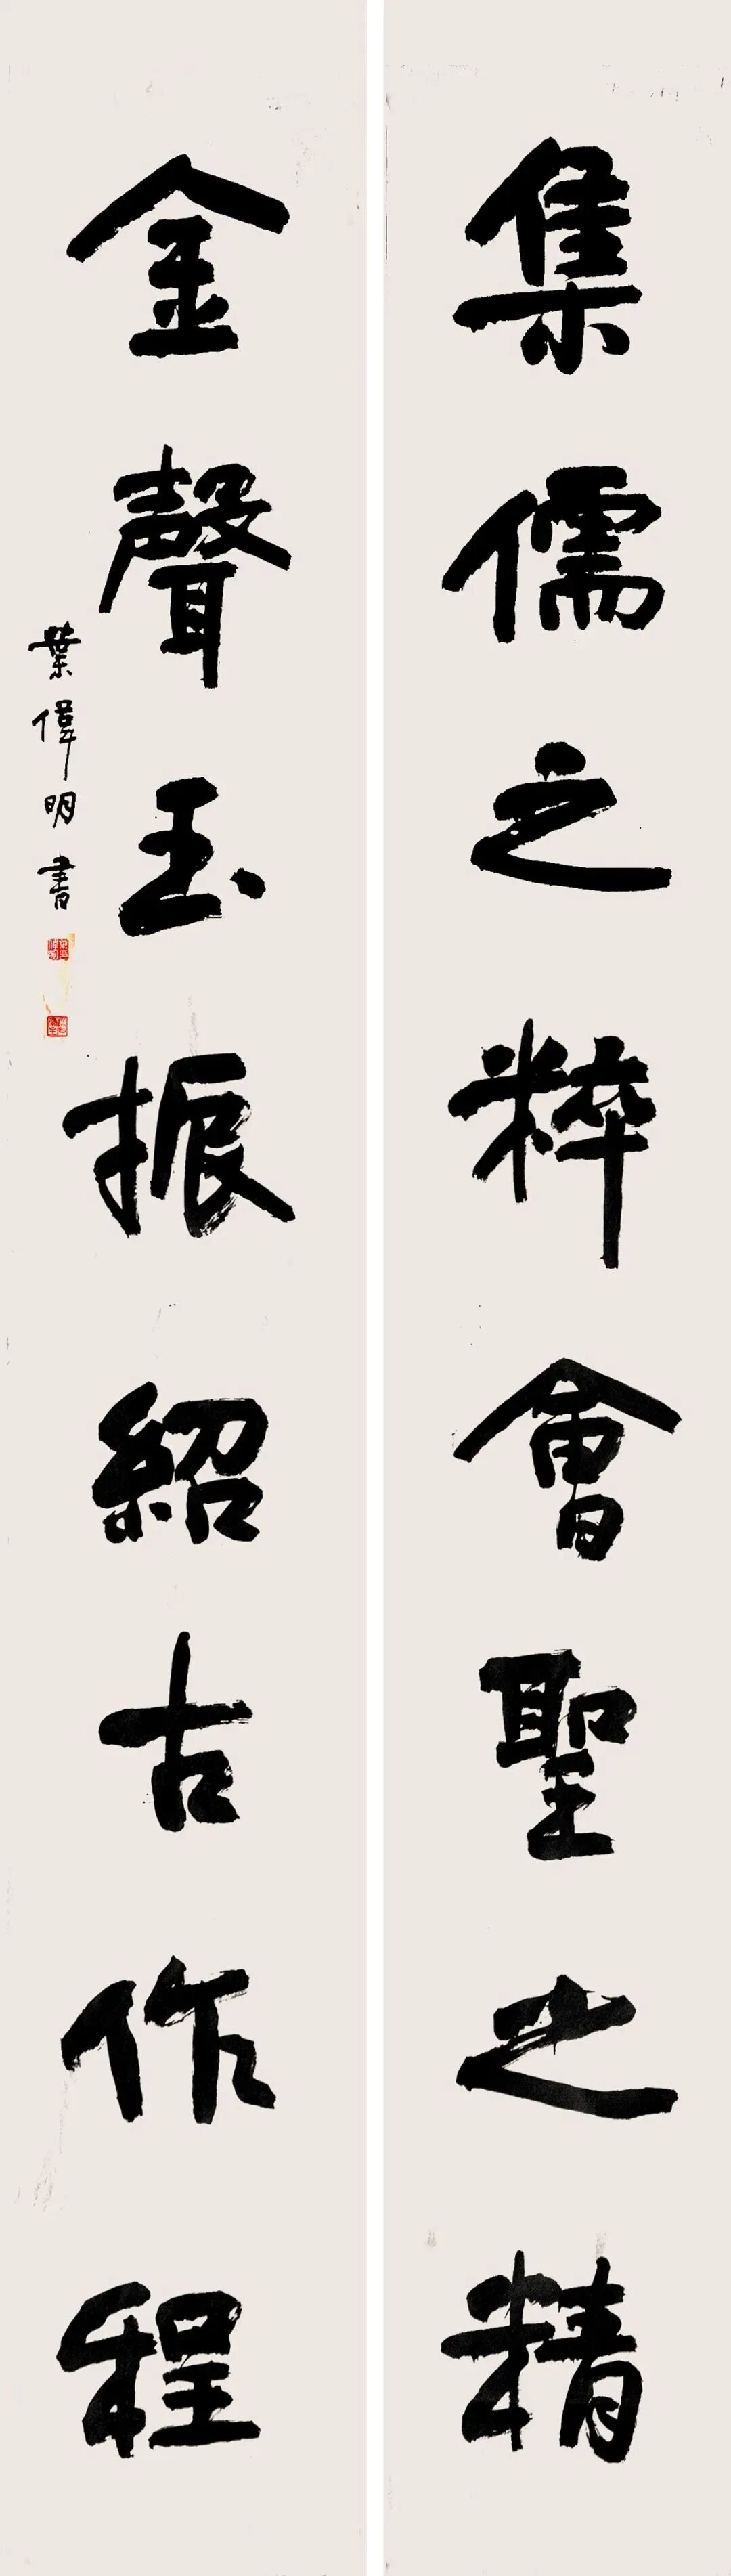 集儒之粹會聖之精
金聲玉振紹古作程
葉偉明書